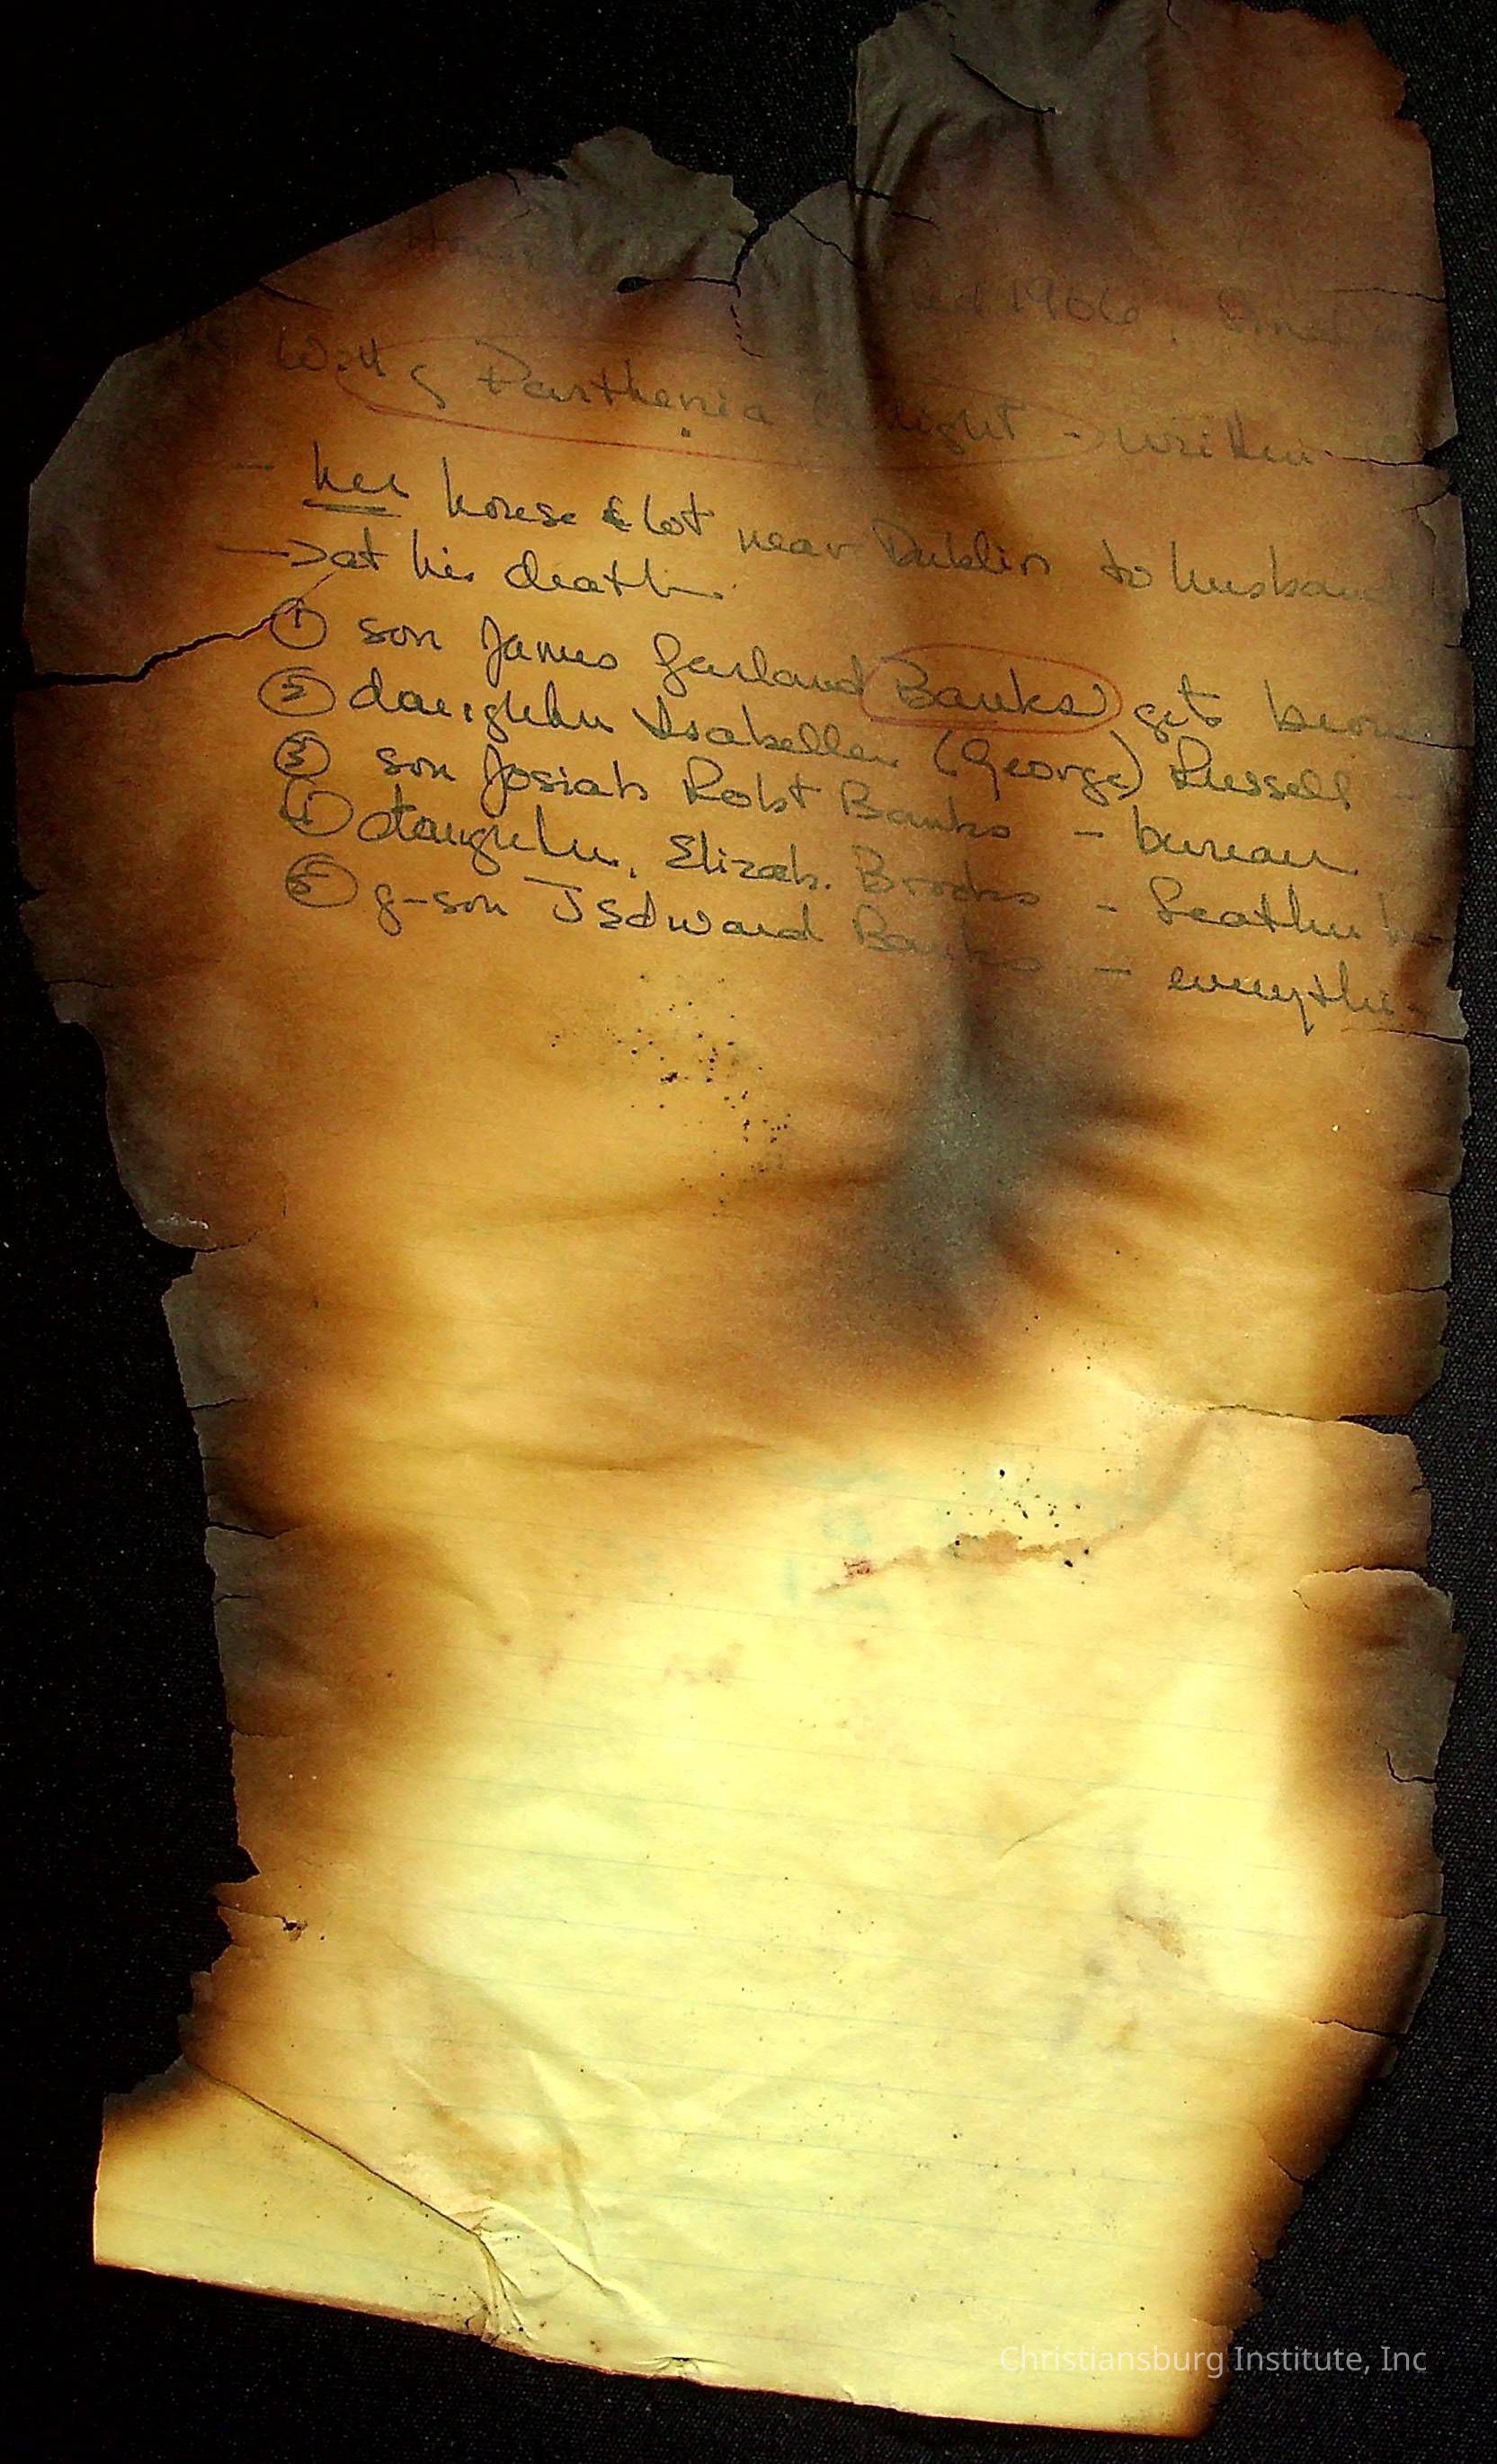 1906,
Will of Parthenia Wright -> written
- her house & lot near Dublin to husband
-> at his death.
① son James Garland Banks gets
② daughter Isabella (George) Russell
③ son Josiah Robt Banks - bureau
④ daughter, Elizab. Brooks - feather
⑤ g-son J Edward Banks - everythi
Christiansburg Institute, Inc